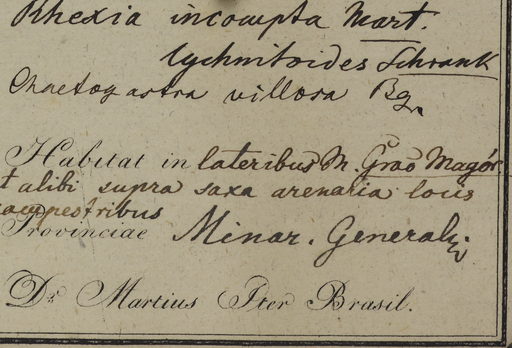 Rhexia incompta Mart.
lychnitoides Schrank
Chaetogastra villosa Bg
Habitat in lateribus M. Grao Magór
t alibi supra saxa arenaria locis
campestribus
Provinciae Minar. General.
Dr. Martius Iter Brasil.